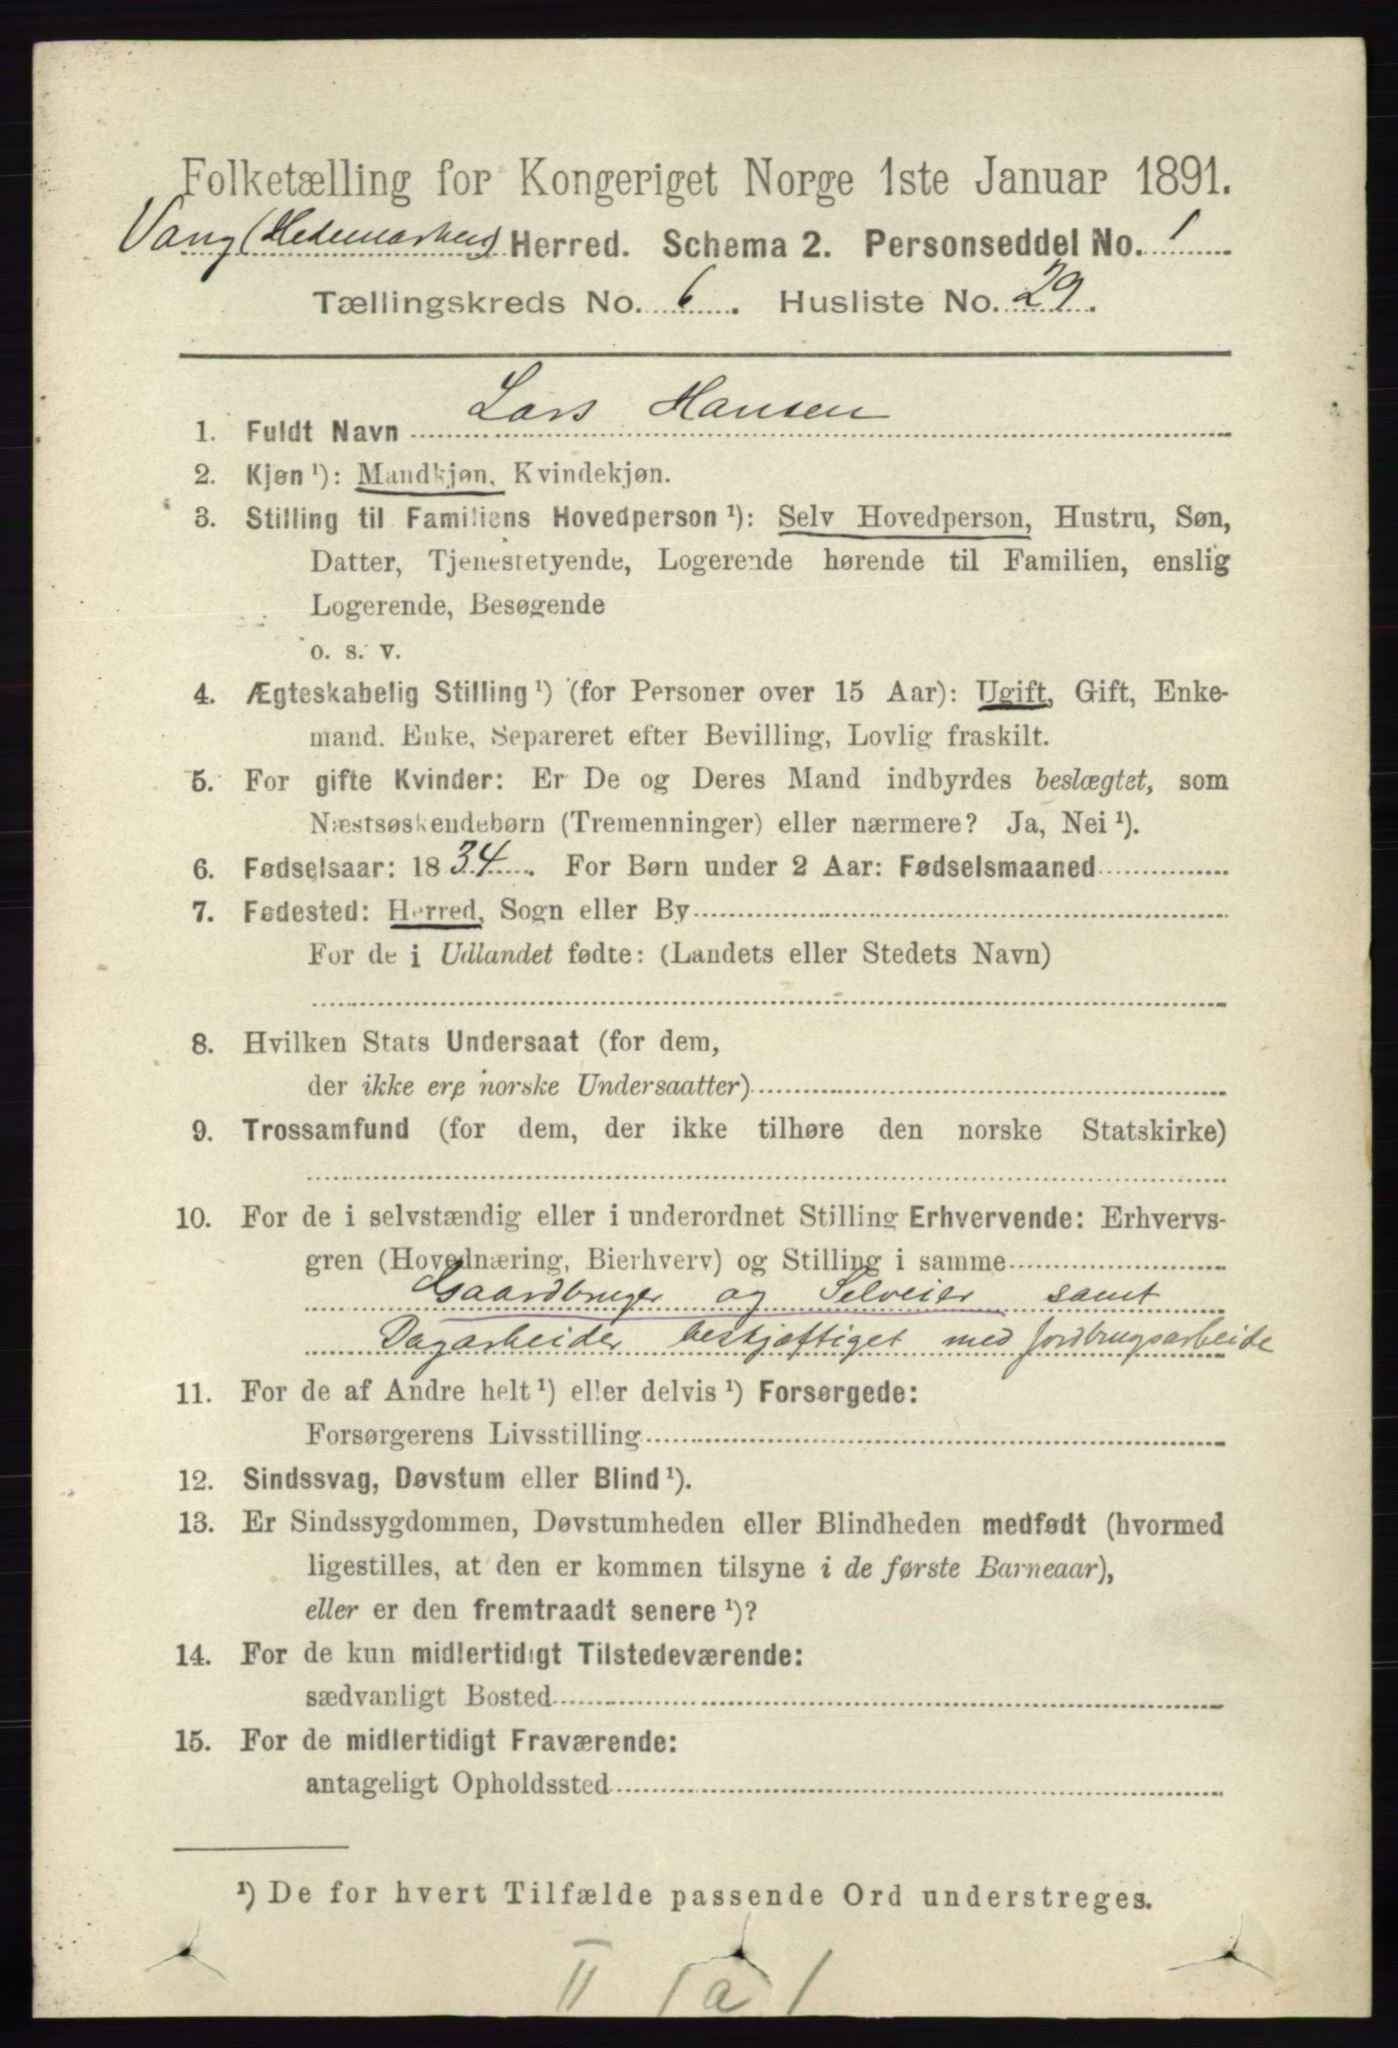 Folketælling for Kongeriget Norge 1ste Januar 1891.
Vang (Hedemarken) Herred. Schema 2. Personseddel No. 1
Tællingskreds No. 6. Husliste No. 29.
1. Fuldt Navn Lars Hansen
2. Kjøn ¹): Mandkjøn, Kvindekjøn.
3. Stilling til Familiens Hovedperson ¹): Selv Hovedperson, Hustru, Søn,
Datter, Tjenestetyende, Logerende hørende til Familien, enslig
Logerende, Besøgende
o. s. v.
4. Ægteskabelig Stilling ¹) (for Personer over 15 Aar): Ugift, Gift, Enke-
mand. Enke, Separeret efter Bevilling, Lovlig fraskilt.
5. For gifte Kvinder: Er De og Deres Mand indbyrdes beslægtet, som
Næstsøskendebørn (Tremenninger) eller nærmere? Ja, Nei ¹).
6. Fødselsaar: 1834. For Børn under 2 Aar: Fødselsmaaned
7. Fødested: Herred, Sogn eller By
For de i Udlandet fødte: (Landets eller Stedets Navn)
8. Hvilken Stats Undersaat (for dem,
der ikke ere norske Undersaatter)
9. Trossamfund (for dem, der ikke tilhøre den norske Statskirke)
10. For de i selvstændig eller i underordnet Stilling Erhvervende: Erhvervs-
gren (Hovednæring, Bierhverv) og Stilling i samme
Gaardbruger og Selveier samt
Dagarbeider beskjæftiget med Jordbrugsarbeide
11. For de af Andre helt ¹) eller delvis ¹) Forsørgede:
Forsørgerens Livsstilling
12. Sindssvag, Døvstum eller Blind ¹).
13. Er Sindssygdommen, Døvstumheden eller Blindheden medfødt (hvormed
ligestilles, at den er kommen tilsyne i de første Barneaar),
eller er den fremtraadt senere ¹)?
14. For de kun midlertidigt Tilstedeværende:
sædvanligt Bosted
15. For de midlertidigt Fraværende:
antageligt Opholdssted
¹) De for hvert Tilfælde passende Ord understreges.
II 1 a 1